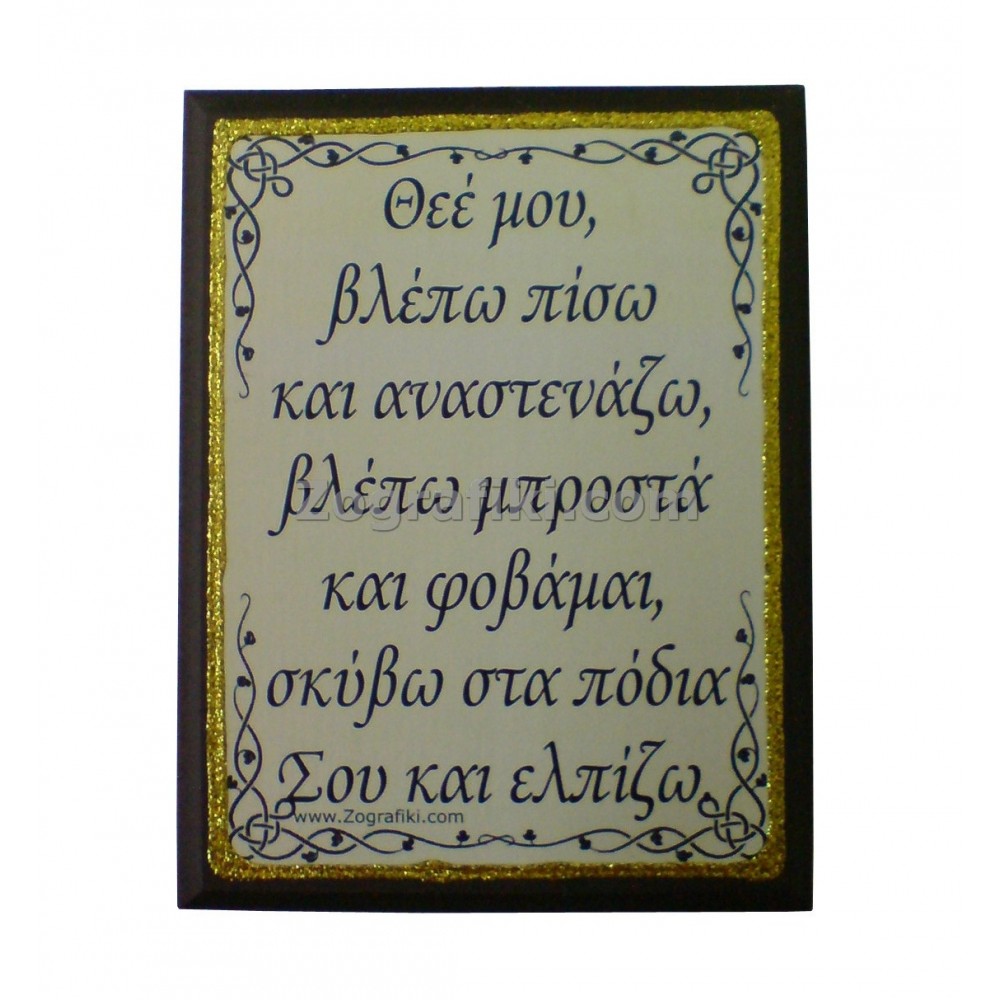 Θεέ μου,
βλέπω πίσω
και αναστενάζω,
βλέπω μπροστά
Zografiki.com
και φοβάμαι,
σκύβω στα πόδια
Σου και ελπίζω.
www.Zografiki.com